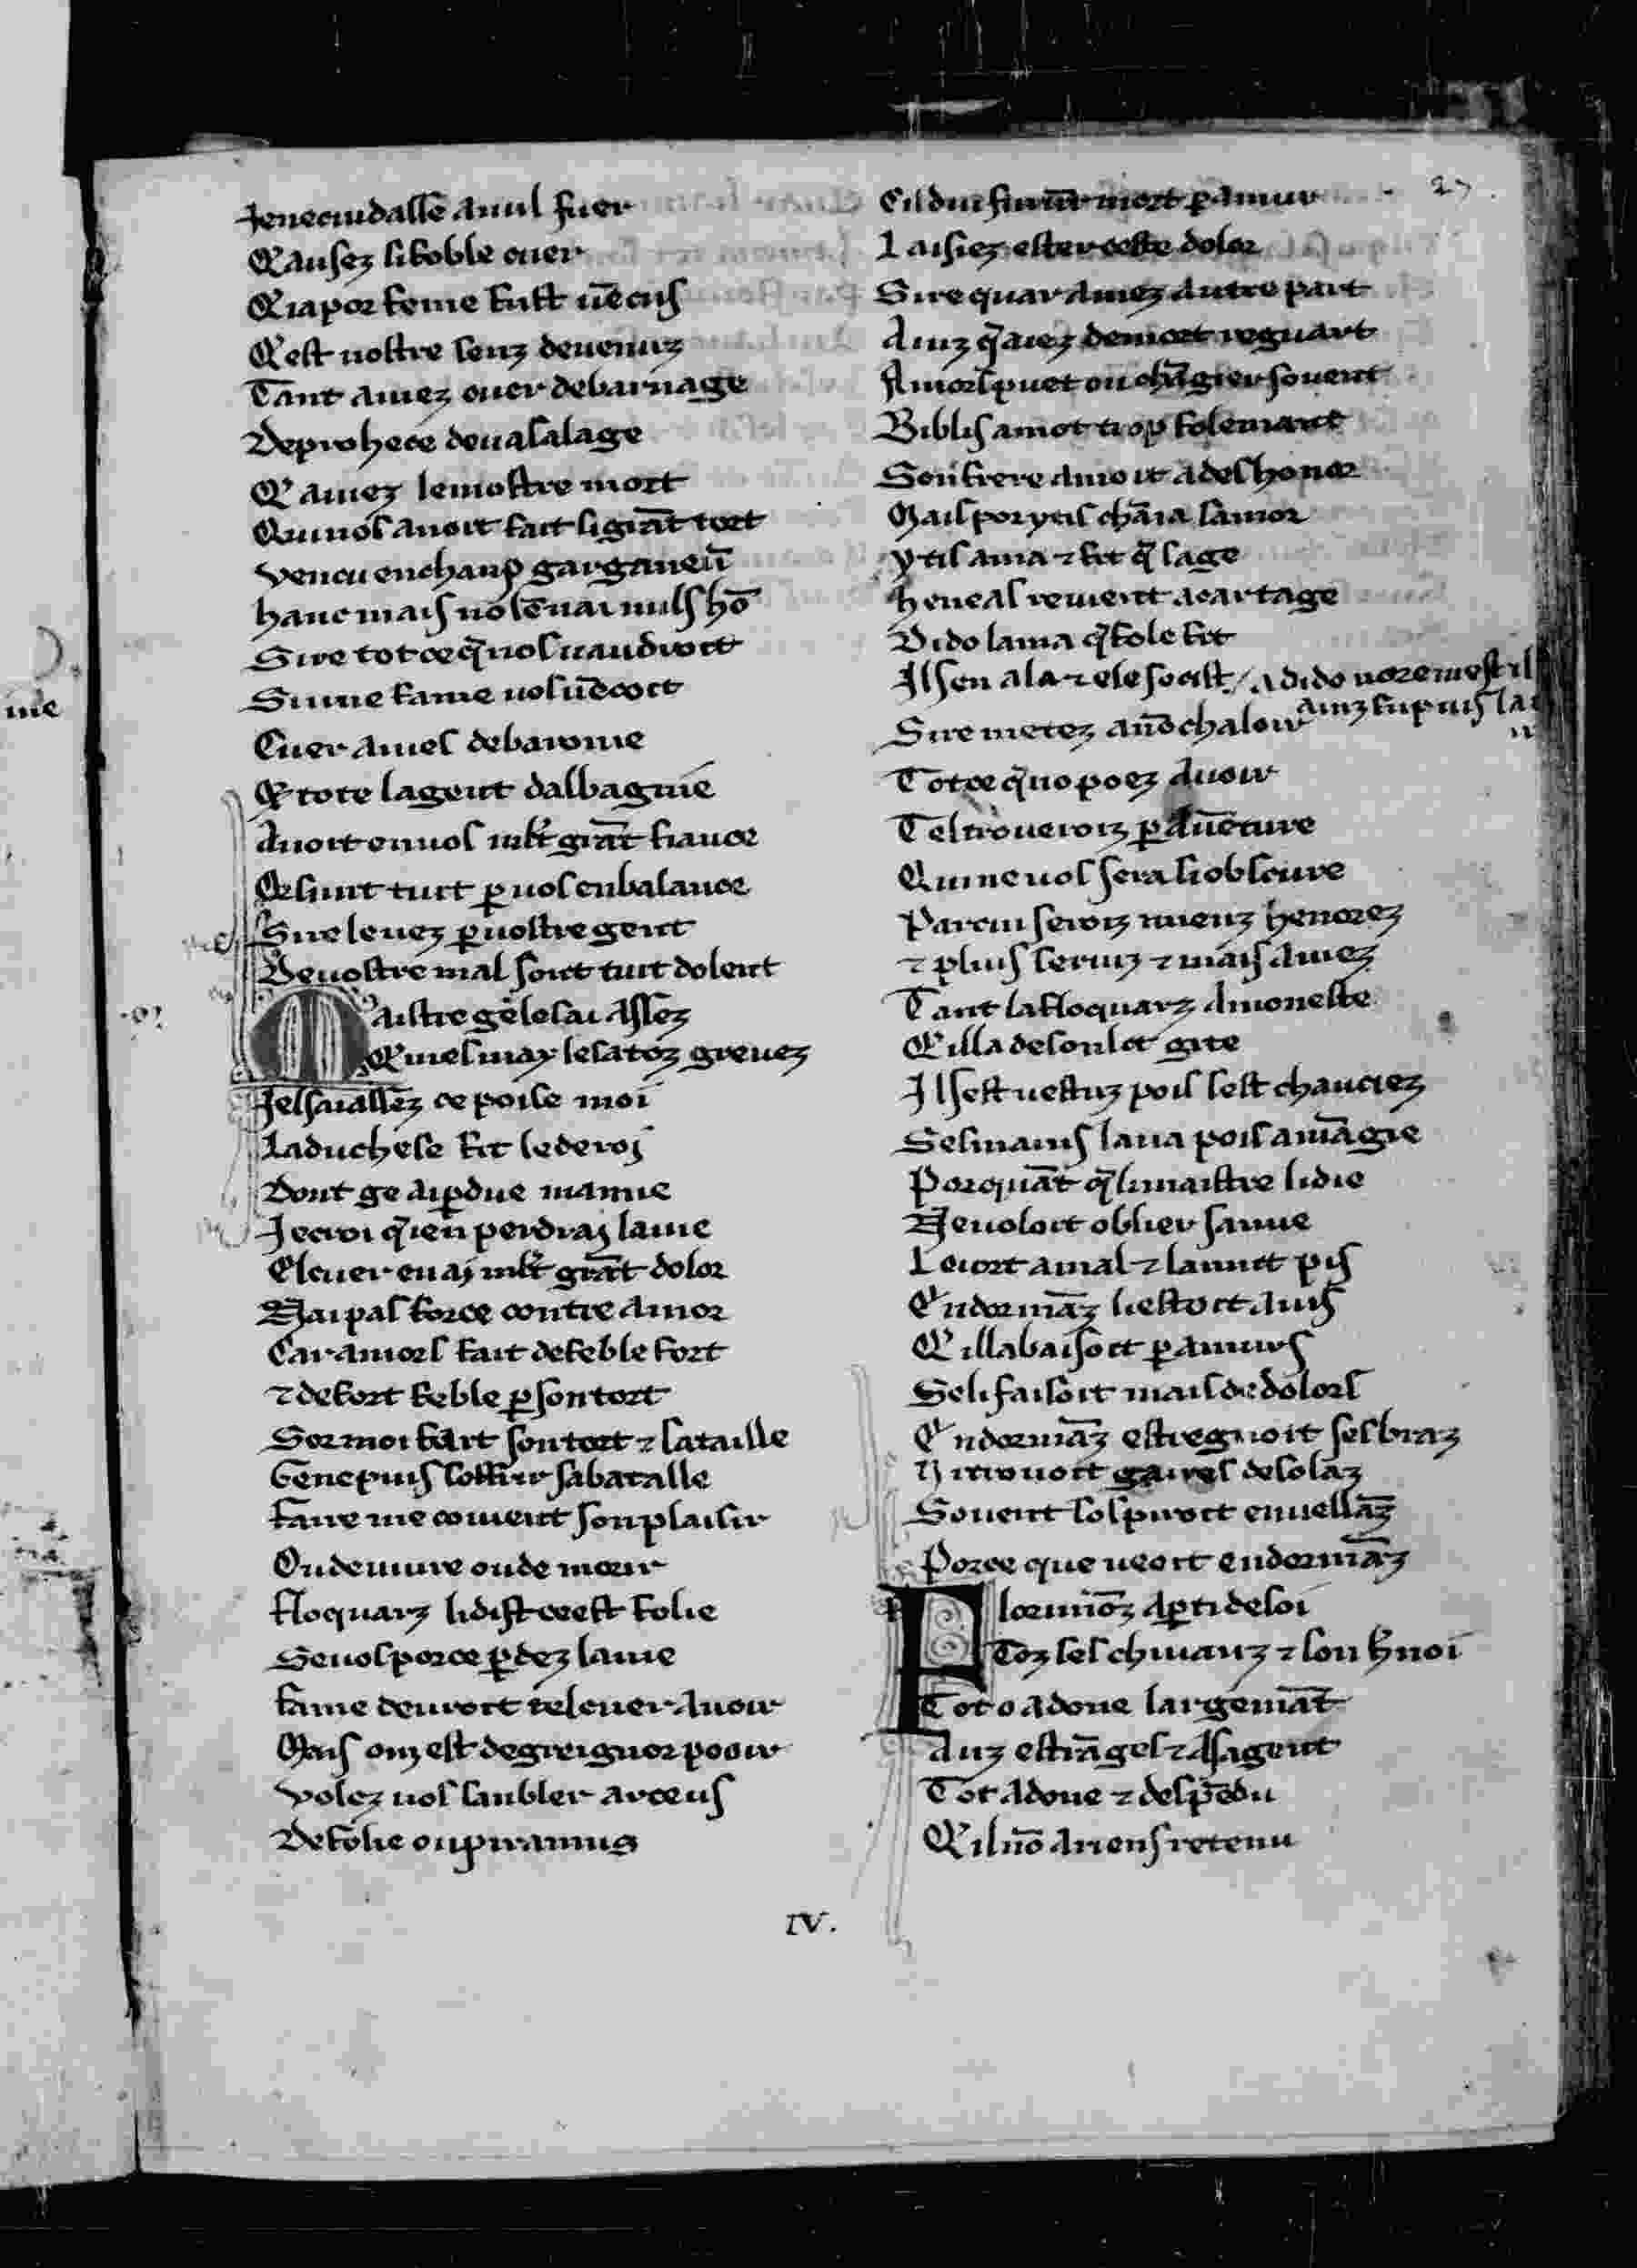 Jenecuidasse anul fuer
Q'ausez si foble cuer
Q'ia por feme fust uēcus
Q'est uostre senz deuenuz
Tant auiez cuer de barnage
De prohece de uasalage
Q' auiez le mostre mort
Qui uos auoit fait si grāt tort
Vencu en chanp garganeū
hanc mais nō sē uai nuls hō
Sire tot ce q̄ uos uaudroit
Si une fame uos uēcoit
Cuer auies de baronie
Q' tote la gent dalbagnie
Auoit en uos ml't grāt fiance
Q' sunt tuit p uos en balance
Sire leuez p uostre gent
De uostre mal sont tuit dolent
Maistre ge le sai assez
Q' mes max les a toz greuez
Jel sai assez ce poise moi
La duchese fit le deroi
Dont ge ai pdue mamie
Je croi q̄ ien perdrai la uie
El cuer en ai ml't grāt dolor
Nai pas force contre amor
Car amors fait de feble fort
⁊ de fort feble p son tort
Sor moi fait son tort ⁊ sa taille
Ge ne puis soffrir sa batalle
Faire me couient son plaisir
Ou de uiure ou de morir
Floquarz li dist ce est folie
Se uos por ce pdez la uie
Fame deuroit tel cuer auoir
Mais onz est de greignor pooir
Volez uos sanbler arceus
De folie ou piramus
27
Cil dui furūt mort p amur
Laisiez ester ceste dolor
Sire quar amez autre part
Ainz q̄ aiez de mort reguart
Amors puet on chāgier souent
Biblis amot trop folemant
Son frere amoit a deshonor
Mais por ytis chāia samor
ytis ama ⁊ fit q̄ sage
heneas reuient a cartage
Dido lama q̄ fole fit
Il sen ala ⁊ ele s ocist / A dido uoremest il
ainz fu puis la
Sire metez a nōchaloir
Tot ce q̄ no poez auoir
Tel trouerroiz p auēture
Qui ne uos sera si obscure
Par cui seroiz mienz henorez
⁊ plus seruiz ⁊ mais amez
Tant la floquarz amoneste
Q' illa de son lit gite
Il sest uestuz pois sest chauciez
Ses mains laua pois a māgie
Por quāt q̄ li maistre li die
Ne uoloit oblier samie
Le iort a mal ⁊ la nuit pis
Endormāz li estoit auis
Q' illa baisoit p amurs
Se li faisoit mais de dolors
Endormāz estregnoit ses braz
Ni trouoit gaires de solaz
Souent sospiroit en uellāz
Por ce que ueoit endormāz
Florimōz a pti de soi
Toz ses chiuauz ⁊ son h'noi
Tot o a doné largemāt
Auz estrāges ⁊ a sa gent
Tot a doné ⁊ despēdu
Q' il nō a riens retenu
IV.